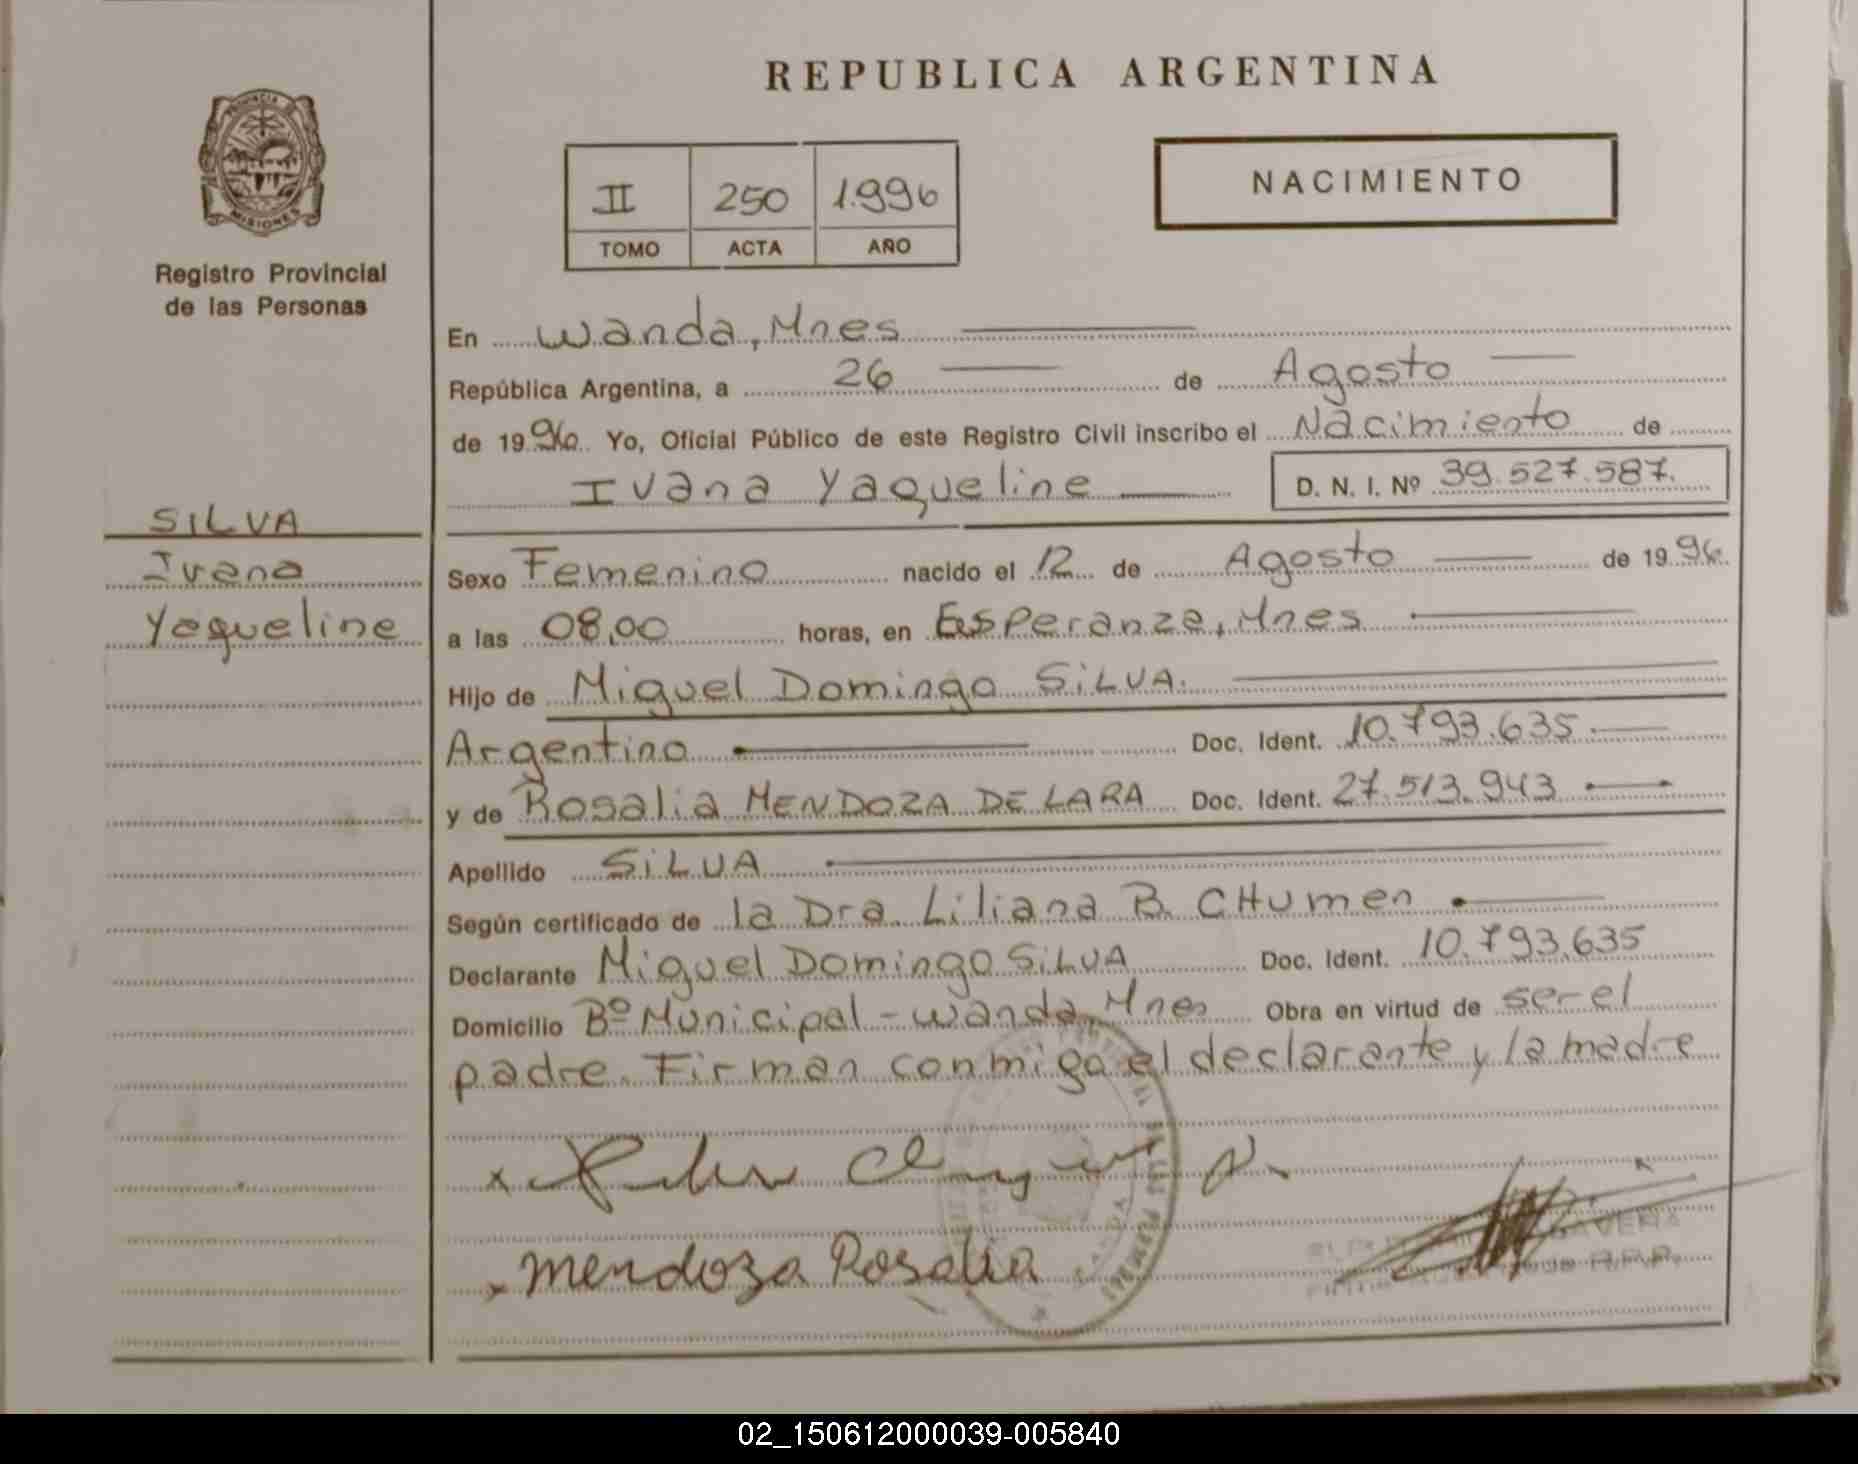 REPUBLICA ARGENTINA
PROVINCIA DE
MISIONES
Registro Provincial
de las Personas
II 250 1.996
TOMO ACTA AÑO
NACIMIENTO
SILVA
Ivana
Yaqueline
En Wanda, Mnes
República Argentina, a 26 de Agosto
de 1996 Yo, Oficial Público de este Registro Civil inscribo el Nacimiento de
Ivana Yaqueline D. N. I. Nº 39.527.587.
Sexo Femenino nacido el 12 de Agosto de 1996
a las 08,00 horas, en Esperanza, Mnes
Hijo de Miguel Domingo SILVA.
Argentino Doc. Ident. 10.793.635
y de Rosalia MENDOZA DE LARA Doc. Ident. 27.513.943
Apellido SILVA
Según certificado de la Dra. Liliana B. CHumen
Declarante Miguel Domingo SILVA Doc. Ident. 10.793.635
Domicilio Bº Municipal - Wanda, Mnes Obra en virtud de ser el
padre. Firman conmigo el declarante y la madre
x
x mendoza Rosalia
02_150612000039-005840